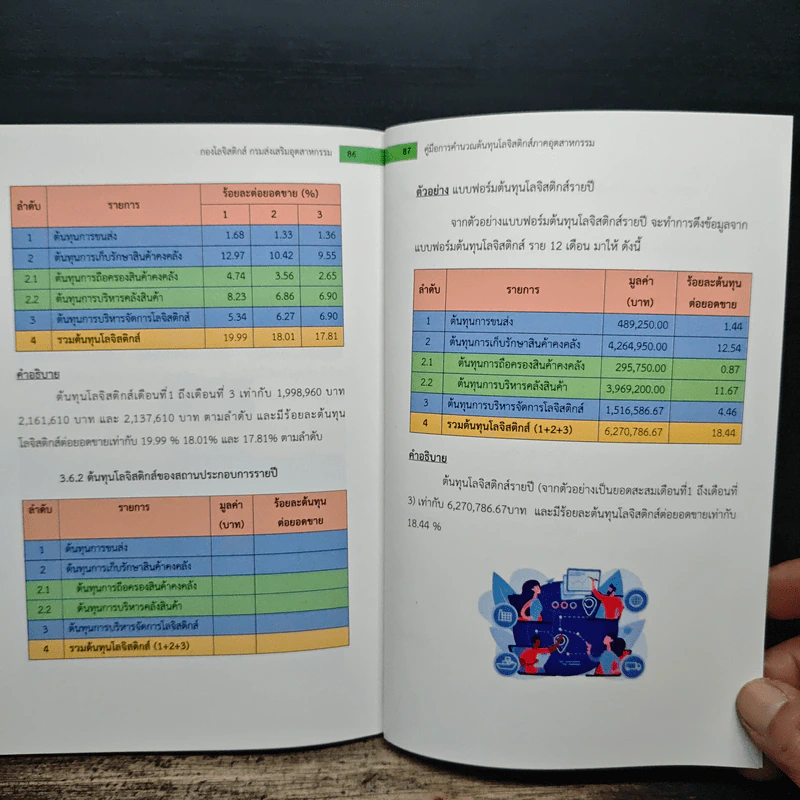 กองโลจิสติกส์ กรมส่งเสริมอุตสาหกรรม 86
ลำดับ รายการ ร้อยละต่อยอดขาย (%)
1 2 3
1 ต้นทุนการขนส่ง 1.68 1.33 1.36
2 ต้นทุนการเก็บรักษาสินค้าคงคลัง 12.97 10.42 9.55
2.1 ต้นทุนการถือครองสินค้าคงคลัง 4.74 3.56 2.65
2.2 ต้นทุนการบริหารคลังสินค้า 8.23 6.86 6.90
3 ต้นทุนการบริหารจัดการโลจิสติกส์ 5.34 6.27 6.90
4 รวมต้นทุนโลจิสติกส์ 19.99 18.01 17.81
คำอธิบาย
ต้นทุนโลจิสติกส์เดือนที่1 ถึงเดือนที่ 3 เท่ากับ 1,998,960 บาท
2,161,610 บาท และ 2,137,610 บาท ตามลำดับ และมีร้อยละต้นทุน
โลจิสติกส์ต่อยอดขายเท่ากับ 19.99 % 18.01% และ 17.81% ตามลำดับ
3.6.2 ต้นทุนโลจิสติกส์ของสถานประกอบการรายปี
ลำดับ รายการ มูลค่า ร้อยละต้นทุน
(บาท) ต่อยอดขาย
1 ต้นทุนการขนส่ง
2 ต้นทุนการเก็บรักษาสินค้าคงคลัง
2.1 ต้นทุนการถือครองสินค้าคงคลัง
2.2 ต้นทุนการบริหารคลังสินค้า
3 ต้นทุนการบริหารจัดการโลจิสติกส์
4 รวมต้นทุนโลจิสติกส์ (1+2+3)
87 คู่มือการคำนวณต้นทุนโลจิสติกส์ภาคอุตสาหกรรม
ตัวอย่าง แบบฟอร์มต้นทุนโลจิสติกส์รายปี
จากตัวอย่างแบบฟอร์มต้นทุนโลจิสติกส์รายปี จะทำการดึงข้อมูลจาก
แบบฟอร์มต้นทุนโลจิสติกส์ ราย 12 เดือน มาให้ ดังนี้
ลำดับ รายการ มูลค่า ร้อยละต้นทุน
(บาท) ต่อยอดขาย
1 ต้นทุนการขนส่ง 489,250.00 1.44
2 ต้นทุนการเก็บรักษาสินค้าคงคลัง 4,264,950.00 12.54
2.1 ต้นทุนการถือครองสินค้าคงคลัง 295,750.00 0.87
2.2 ต้นทุนการบริหารคลังสินค้า 3,969,200.00 11.67
3 ต้นทุนการบริหารจัดการโลจิสติกส์ 1,516,586.67 4.46
4 รวมต้นทุนโลจิสติกส์ (1+2+3) 6,270,786.67 18.44
คำอธิบาย
ต้นทุนโลจิสติกส์รายปี (จากตัวอย่างเป็นยอดสะสมเดือนที่1 ถึงเดือนที่
3) เท่ากับ 6,270,786.67บาท และมีร้อยละต้นทุนโลจิสติกส์ต่อยอดขายเท่ากับ
18.44 %